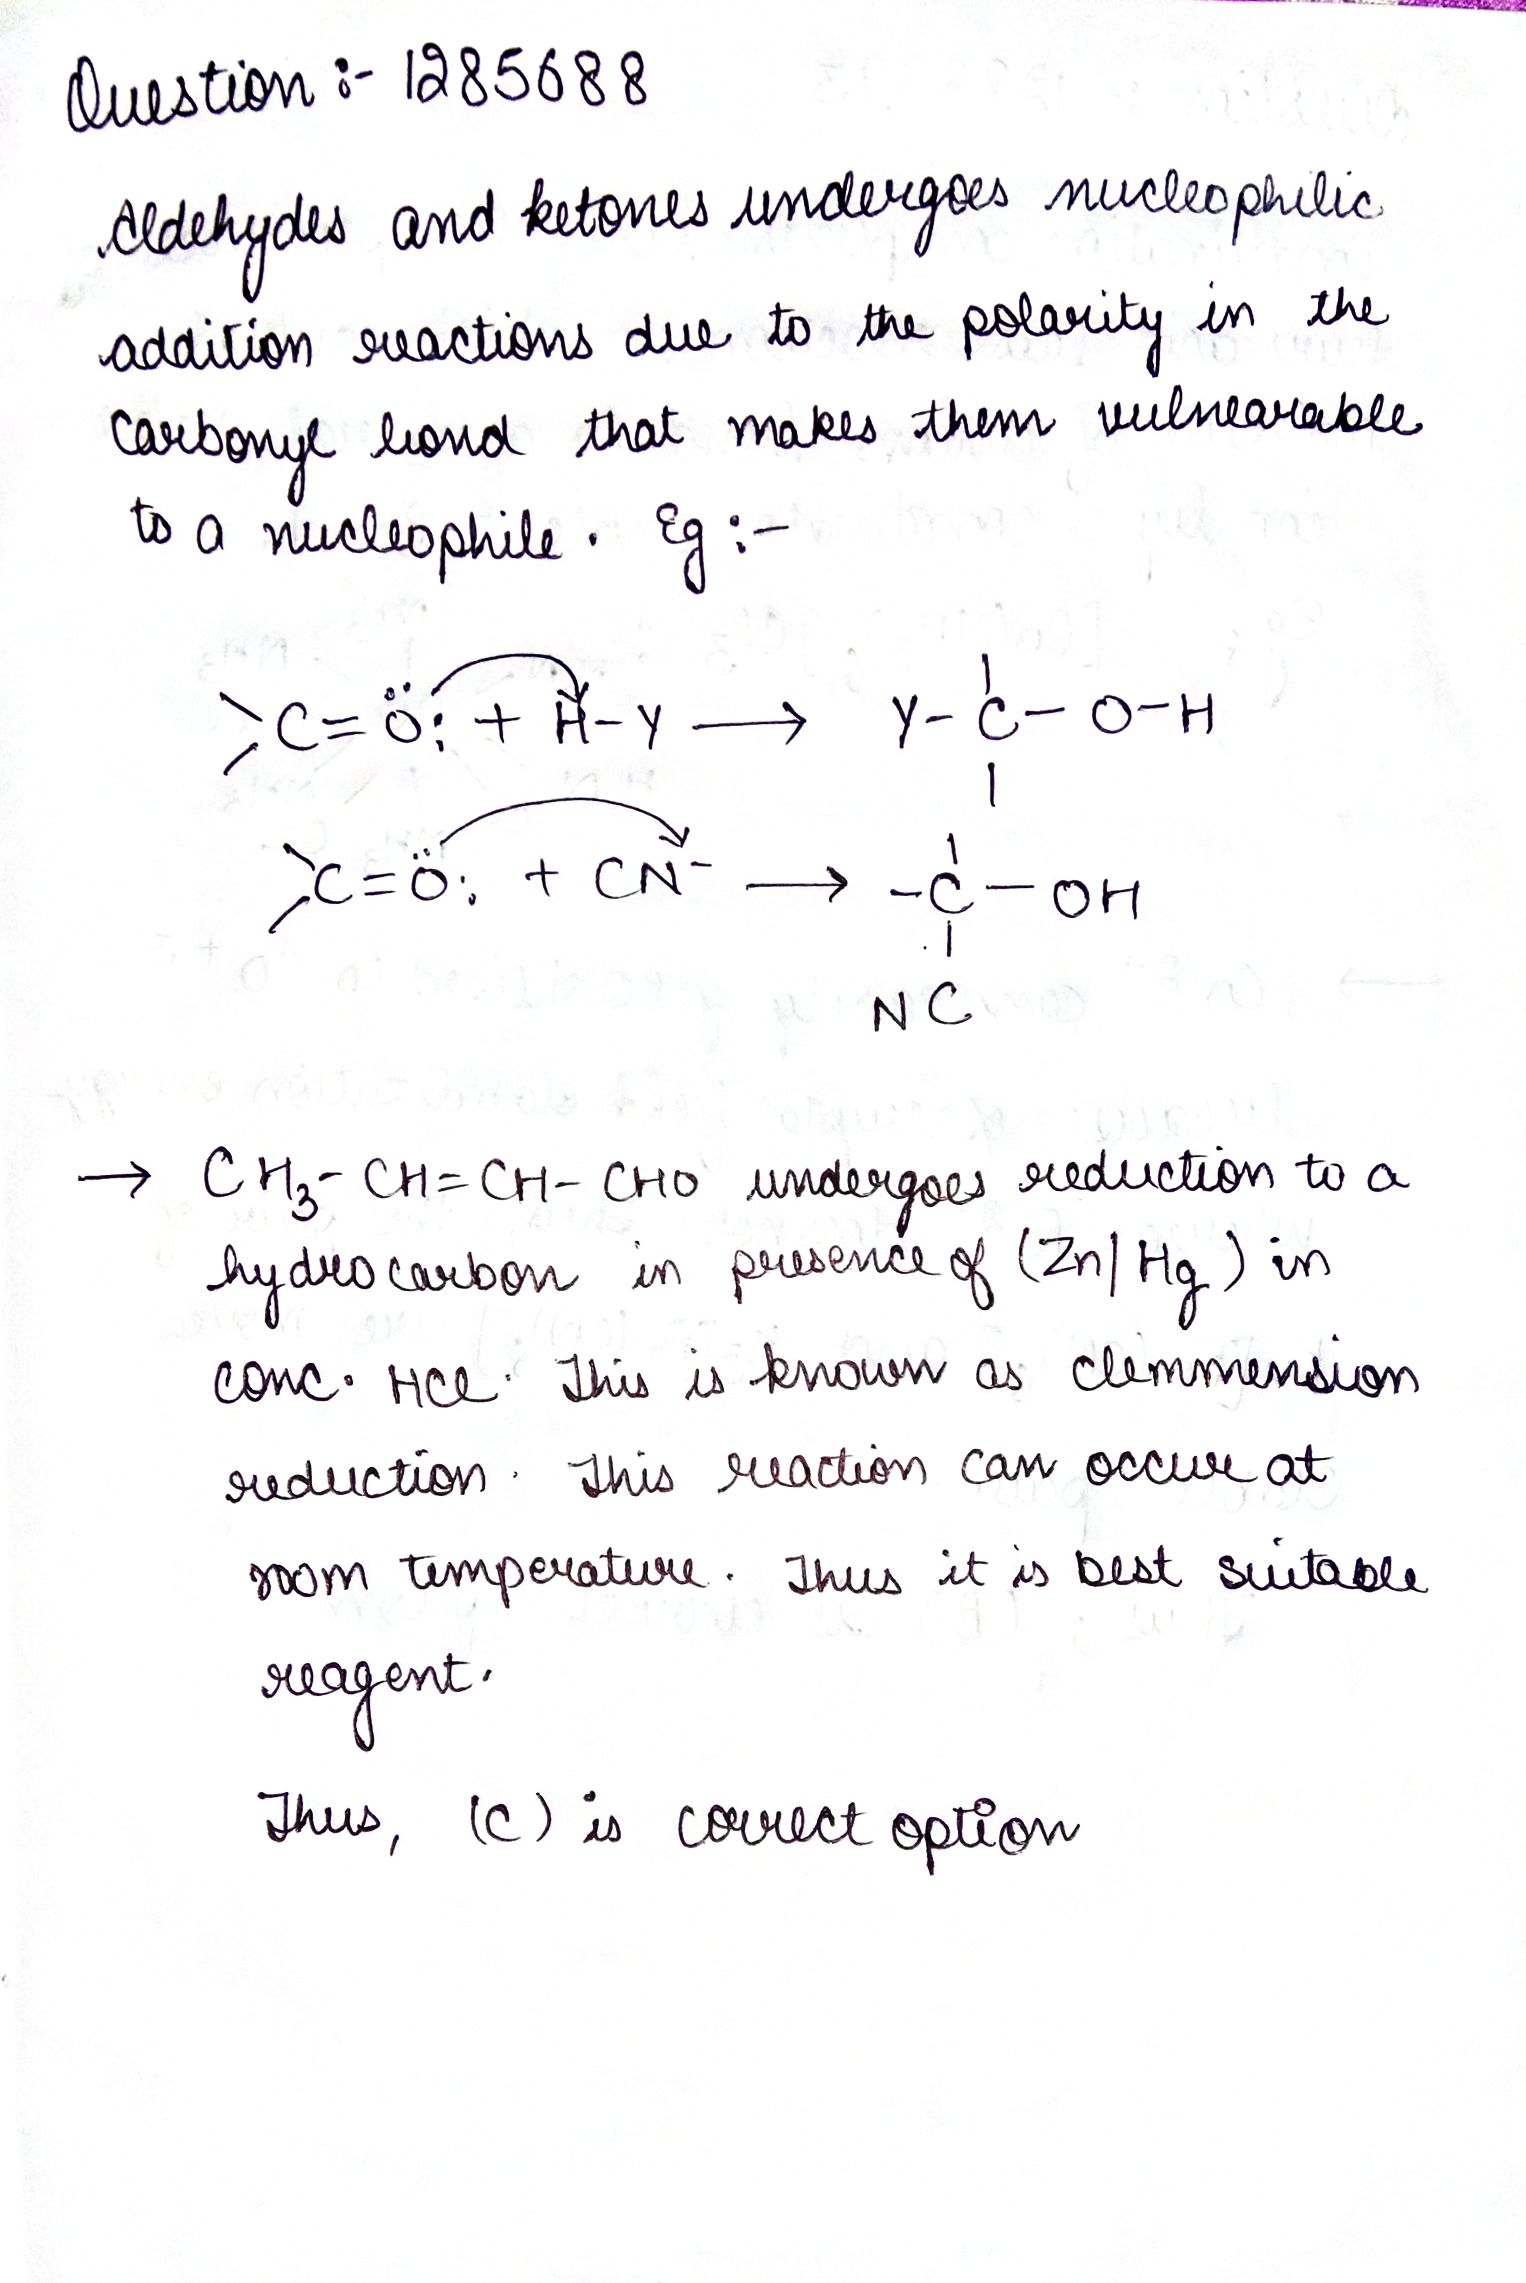 Question :- 1285688
Aldehydes and ketones undergoes nucleophilic
addition reactions due to the polarity in the
carbonyl bond that makes them vulnearable
to a nucleophile. Eg :-
>C=Ö: + H-Y ⟶ Y-C-O-H
>C=Ö: + CN⁻ ⟶ -C-OH
NC
→ CH₃-CH=CH-CHO undergoes reduction to a
hydrocarbon in presence of (Zn/Hg) in
conc. HCl. This is known as clemmension
reduction. This reaction can occur at
room temperature. Thus it is best suitable
reagent.
Thus, (C) is correct option